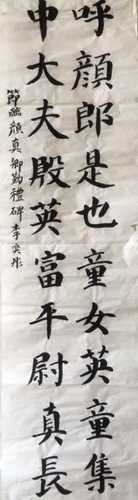 呼顔郎是也童女英童集
申大夫殿英富平尉真長
節臨顔真卿勤禮碑李奕彤